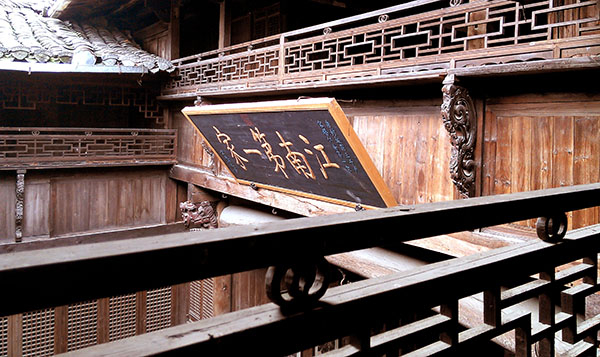 江南第一家